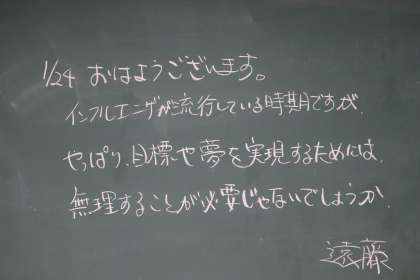 1/24 おはようございます。
インフルエンザが流行している時期ですが、
やっぱり、目標や夢を実現するためには、
無理することが必要じゃないでしょうか。
遠藤